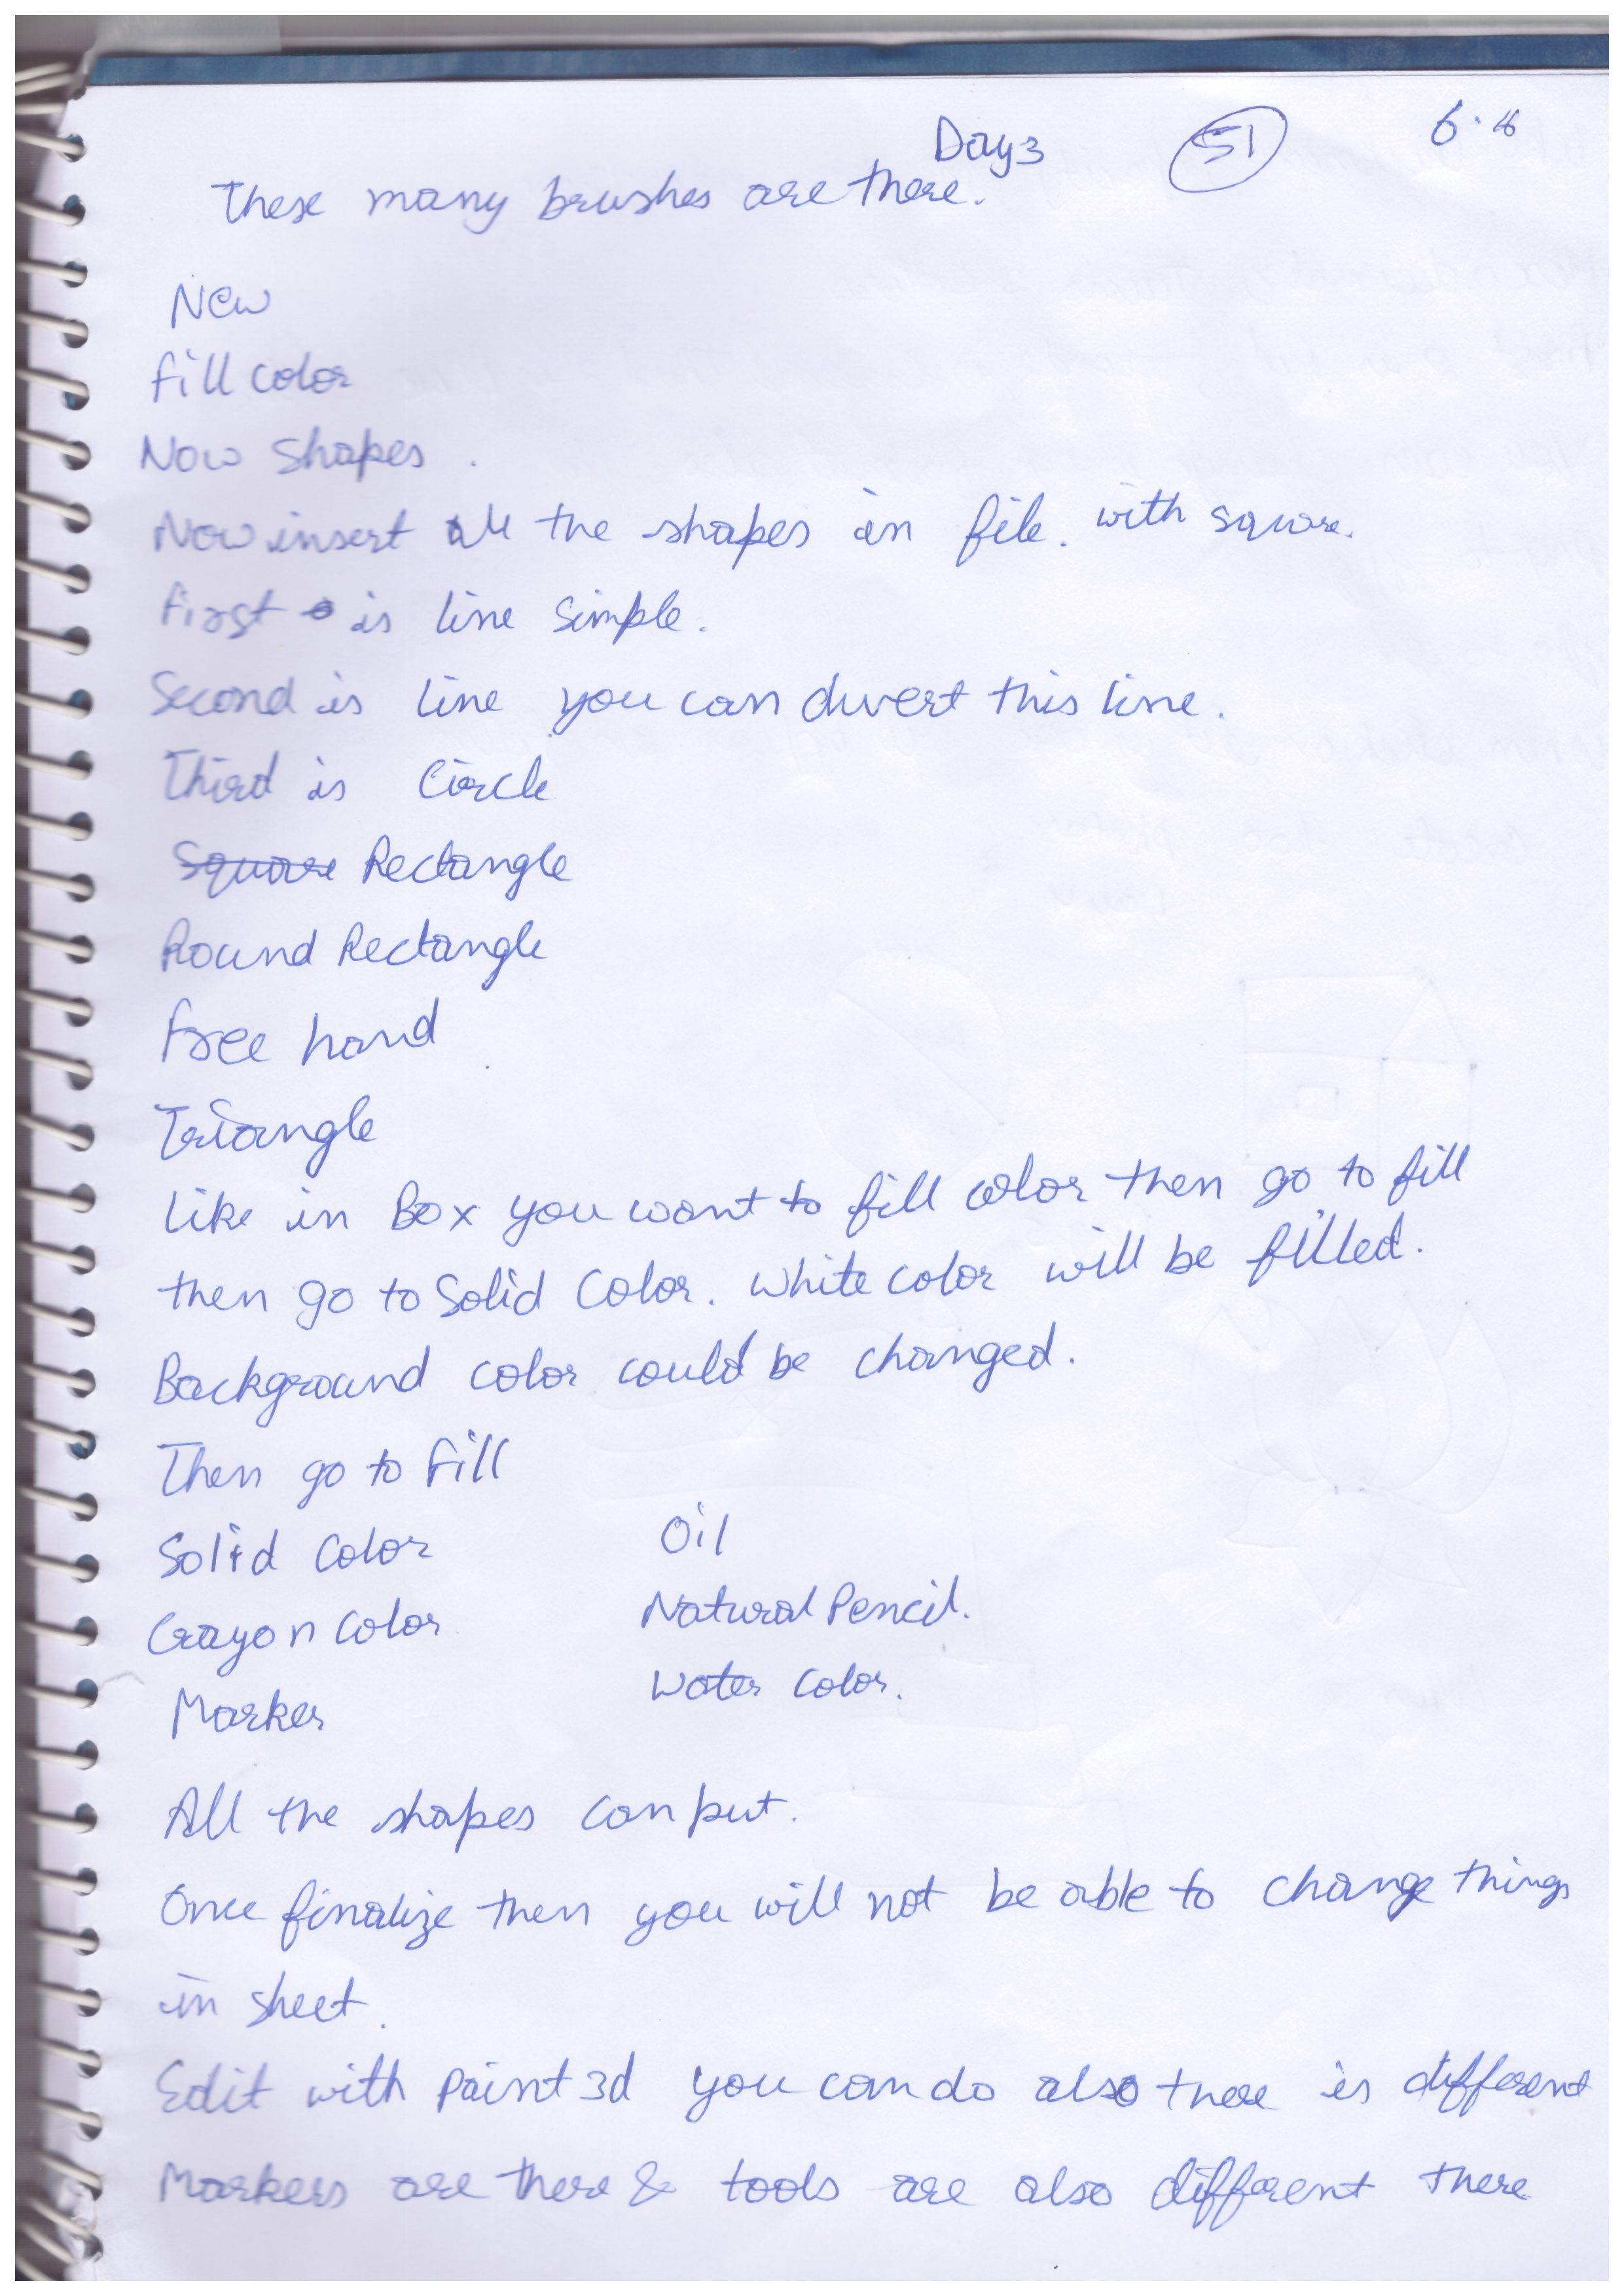 Day3 51 6.8
These many brushes are there.
New
Fill color
Now Shapes.
Now insert all the shapes in file. with square.
First is line simple.
Second is line you can divert this line.
Third is Circle
Square Rectangle
Round Rectangle
Free hand
Triangle
Like in Box you want to fill color then go to fill
then go to Solid Color. White color will be filled.
Background color could be changed.
Then go to Fill
Solid Color Oil
Crayon Color Natural Pencil.
Marker Water Color.
All the shapes can put.
Once finalize then you will not be able to change things
in sheet.
Edit with Paint 3d you can do also there is different
Markers are there & tools are also different there